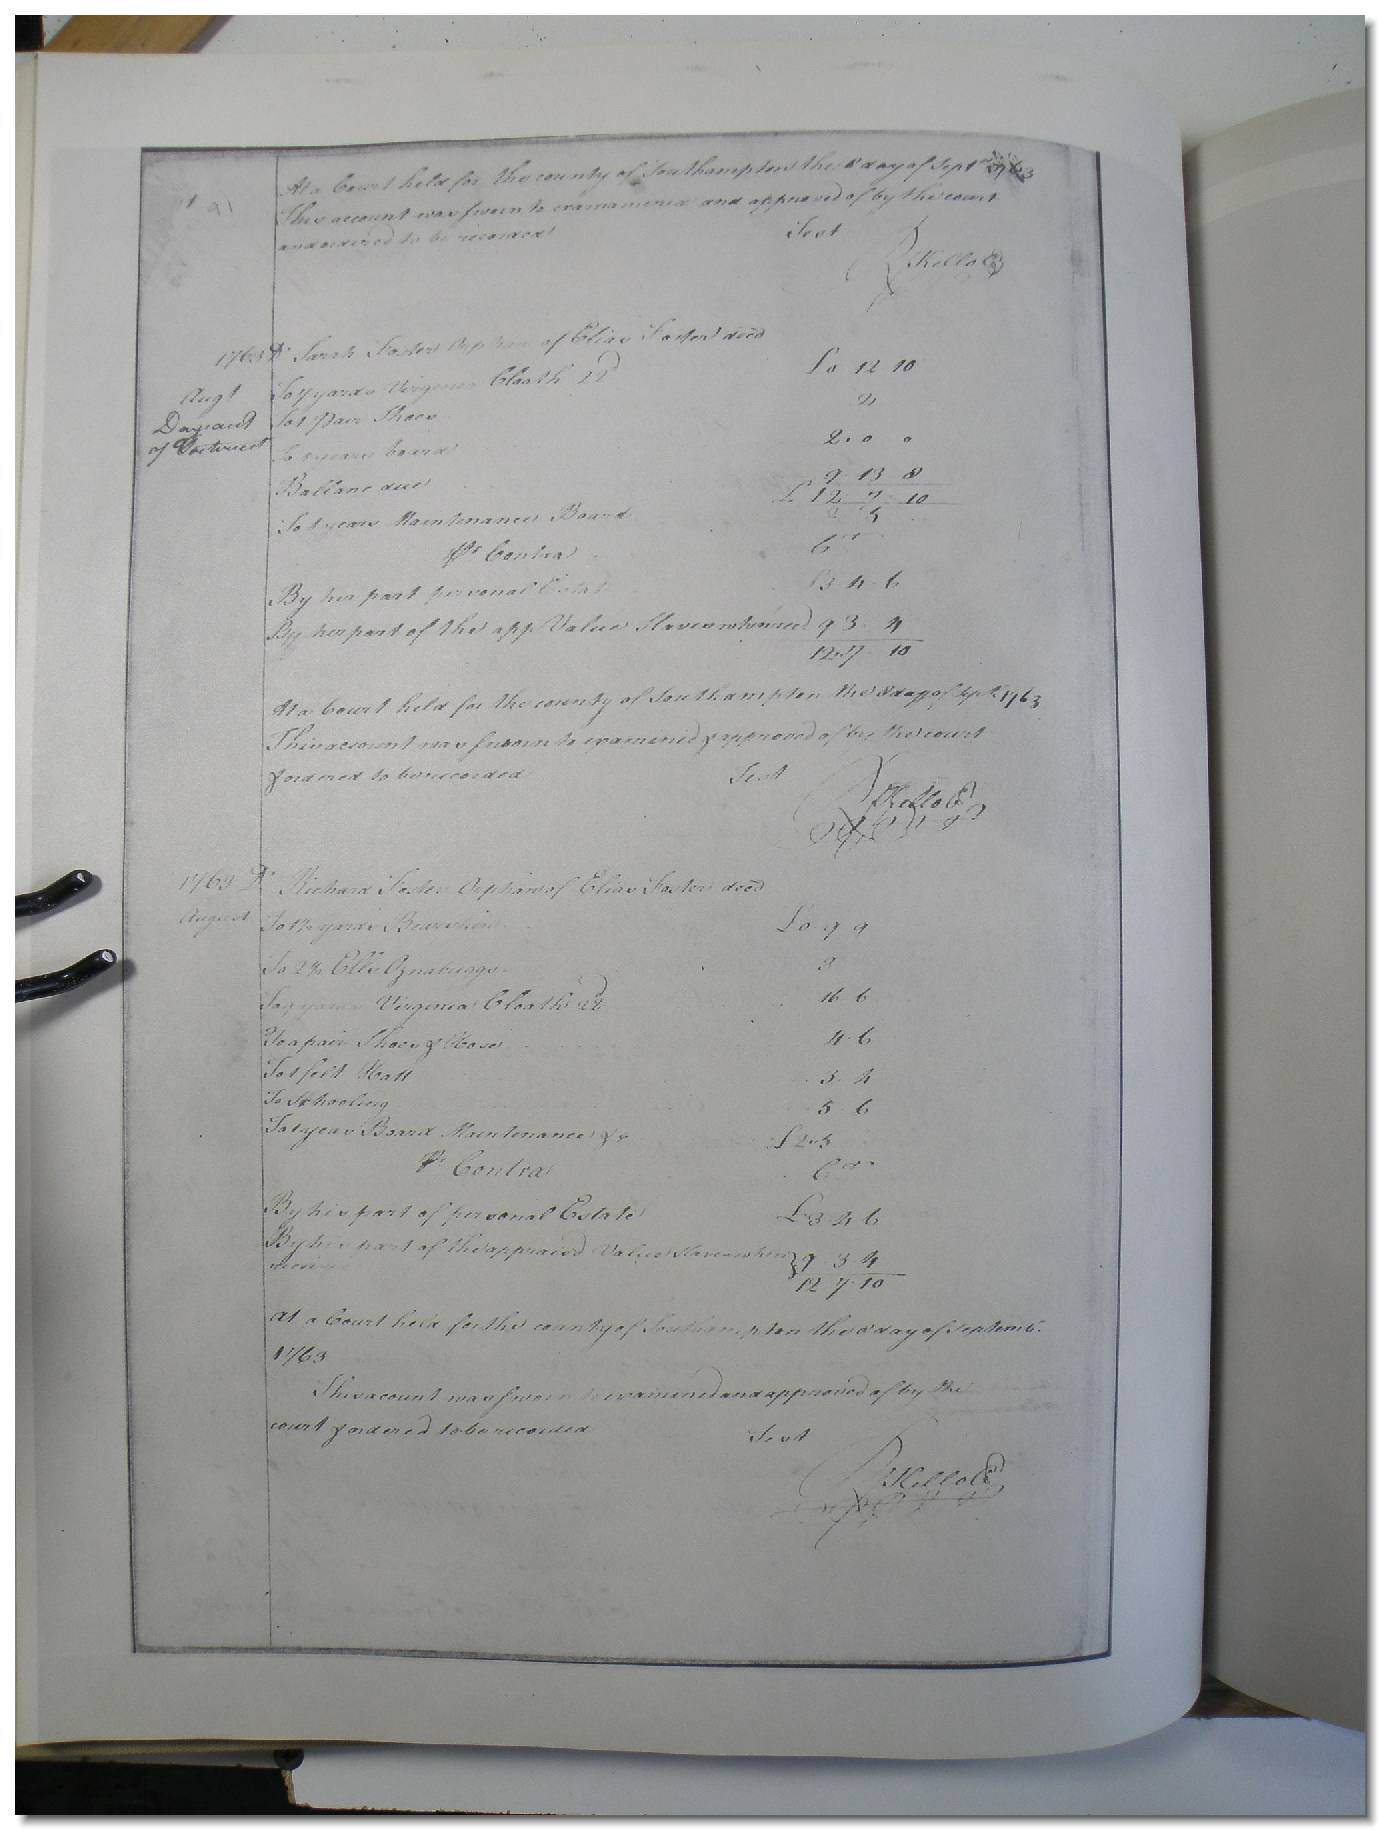 At a Court held for the county of Southampton the 8 day of Sept 1763
This account was sworn to examined and approved of by the court
and ordered to be recorded
Test
Kello
91
1763 Dr Sarah Foster Orphan of Elias Foster decd
Augt To 7 yards Virginia Cloath 22d £0 12 10
Day and To 1 pair Shoes
of Interest To years board 2. 0 0
Ballanc due 9 13 8
£12 7 10
To 1 years Maintenance Board 2 5
Pr Contra Cr
By her part personal Estate 3 4 6
By her part of the app Value Slaves when 9 3 4
12.7 10
At a Court held for the county of Southampton the 8 day of Sept 1763
This account was sworn to examined & approved of by the court
& ordered to be recorded Test
Kello
1763 Dr Richard Foster Orphan of Elias Foster decd
August To yards Bearskin £0 9 9
To 2 Ells Oznabrigs 3
To 9 yards Virginia Cloath 22d 16 6
To a pair Shoes & Hose 4 6
To 1 felt Hatt 3 4
To Schooling 5 6
To 1 year Board Maintenance & £2.5
Pr Contra Cr
By his part of personal Estate £3 4 6
By his part of the appraisd Value Slaves when 9 3 4
12 7 10
At a Court held for the county of Southampton the 8 day of Septemb.
1763
This account was sworn to examined and approved of by the
court & ordered to be recorded Test
Kello